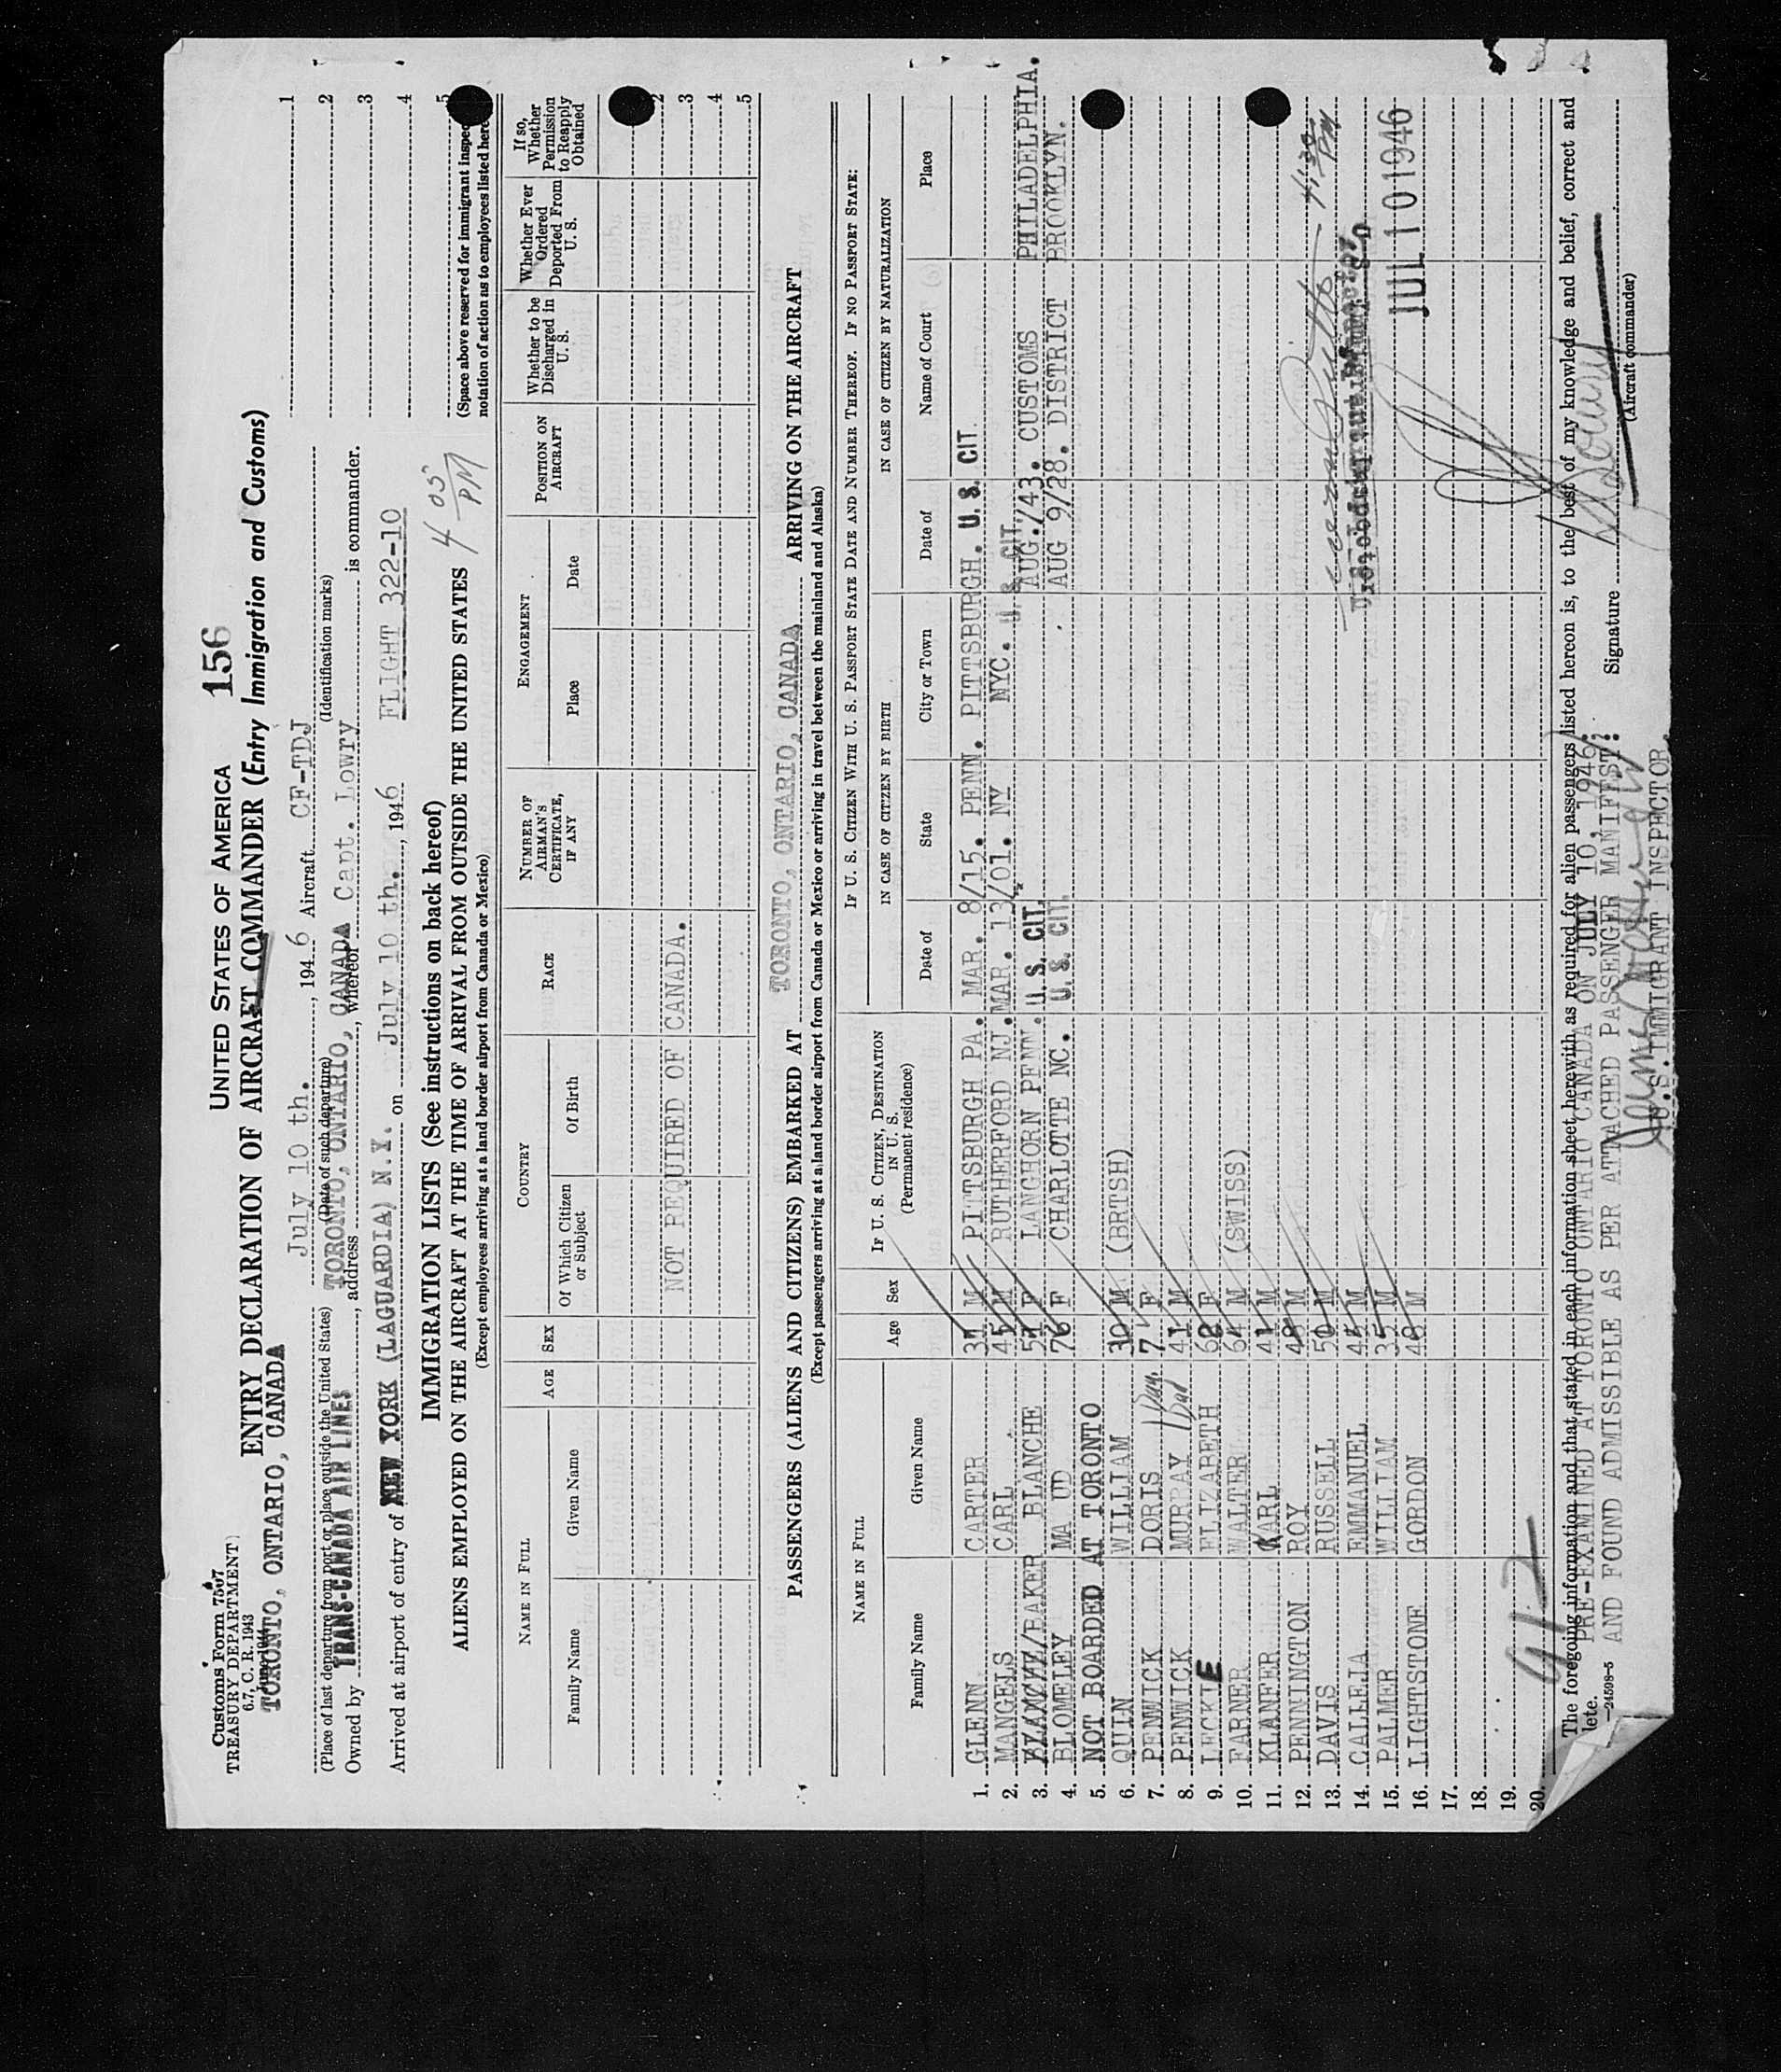 Customs Form 7507
TREASURY DEPARTMENT
6.7, C. R. 1943
UNITED STATES OF AMERICA 156
ENTRY DECLARATION OF AIRCRAFT COMMANDER (Entry Immigration and Customs)
TORONTO, ONTARIO, CANADA July 10 th. , 194 6 Aircraft CF-TDJ
(Place of last departure from port or place outside the United States) (Date of such departure) (Identification marks)
Owned by TRANS-CANADA AIR LINES , address TORONTO, ONTARIO, CANADA , whereof Capt. Lowry is commander.
Arrived at airport of entry of NEW YORK (LAGUARDIA) N.Y. on July 10 th. , 1946 FLIGHT 322-10
1
2
3
4
5
(Space above reserved for immigrant inspec
notation of action as to employees listed here
IMMIGRATION LISTS (See instructions on back hereof)
4 05 PM
ALIENS EMPLOYED ON THE AIRCRAFT AT THE TIME OF ARRIVAL FROM OUTSIDE THE UNITED STATES
(Except employees arriving at a land border airport from Canada or Mexico)
NAME IN FULL AGE SEX COUNTRY RACE NUMBER OF AIRMAN'S CERTIFICATE, IF ANY ENGAGEMENT POSITION ON AIRCRAFT Whether to be Discharged in U. S. Whether Ever Ordered Deported From U. S. If so, Whether Permission to Reapply Obtained
Family Name Given Name Of Which Citizen or Subject Of Birth Place Date
2
NOT REQUIRED OF CANADA. 3
4
5
PASSENGERS (ALIENS AND CITIZENS) EMBARKED AT TORONTO, ONTARIO, CANADA ARRIVING ON THE AIRCRAFT
(Except passengers arriving at a land border airport from Canada or Mexico or arriving in travel between the mainland and Alaska)
NAME IN FULL Age Sex IF U. S. CITIZEN, DESTINATION IN U. S. (Permanent residence) IF U. S. CITIZEN WITH U. S. PASSPORT STATE DATE AND NUMBER THEREOF. IF NO PASSPORT STATE:
IN CASE OF CITIZEN BY BIRTH IN CASE OF CITIZEN BY NATURALIZATION
Family Name Given Name Date of State City or Town Date of Name of Court Place
1. GLENN CARTER M PITTSBURGH PA. MAR. 8/15. PENN. PITTSBURGH. U. S. CIT.
2. MANGELS CARL 45 M RUTHERFORD NJ. MAR. 13/01. NY NYC. U. S. CIT.
3. BAKER BLANCHE F LANGHORN PENN. U. S. CIT. AUG./43. CUSTOMS PHILADELPHIA.
4. BLOMELEY MA UD 76 F CHARLOTTE NC. U. S. CIT. AUG 9/28. DISTRICT BROOKLYN.
5. NOT BOARDED AT TORONTO
6. QUIN WILLIAM 30 M (BRTSH)
7. PENWICK DORIS 7 F
8. PENWICK MURRAY 41 M
9. LECKIE ELIZABETH 62 F
10. FARNER WALTER 64 M (SWISS)
11. KLANFER KARL 41 M
12. PENNINGTON ROY 48 M
13. DAVIS RUSSELL 50 M
14. CALLEJA EMMANUEL M
15. PALMER WILLIAM 35 M
16. LIGHTSTONE GORDON 48 M
17.
18.
19.
20.
4:30 PM
JUL 10 1946
The foregoing information and that stated in each information sheet herewith as required for alien passengers listed hereon is, to the best of my knowledge and belief, correct and
lete. PRE-EXAMINED AT TORONTO ONTARIO CANADA ON JULY 10, 1946.
24598-5 AND FOUND ADMISSIBLE AS PER ATTACHED PASSENGER MANIFEST.
Signature Lowry
(Aircraft commander)
U.S. IMMIGRANT INSPECTOR.